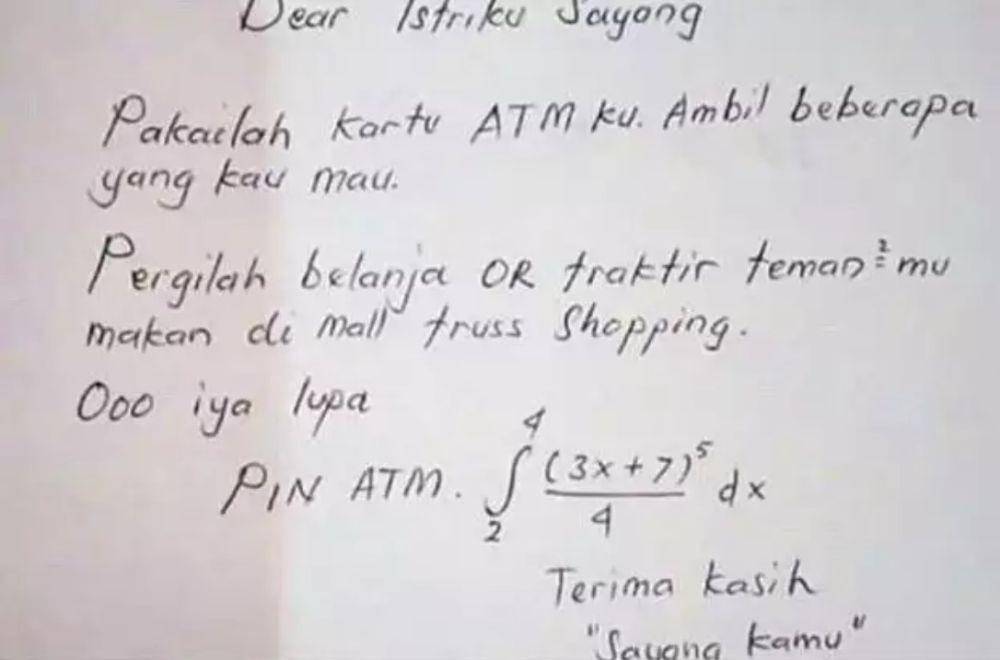 Dear Istriku Sayang
Pakailah kartu ATM ku. Ambil beberapa
yang kau mau.
Pergilah belanja OR traktir teman²mu
makan di mall truss Shopping.
Ooo iya lupa
PIN ATM. ∫₂⁴ (3x+7)⁵/4 dx
Terima kasih
"Sayang kamu"